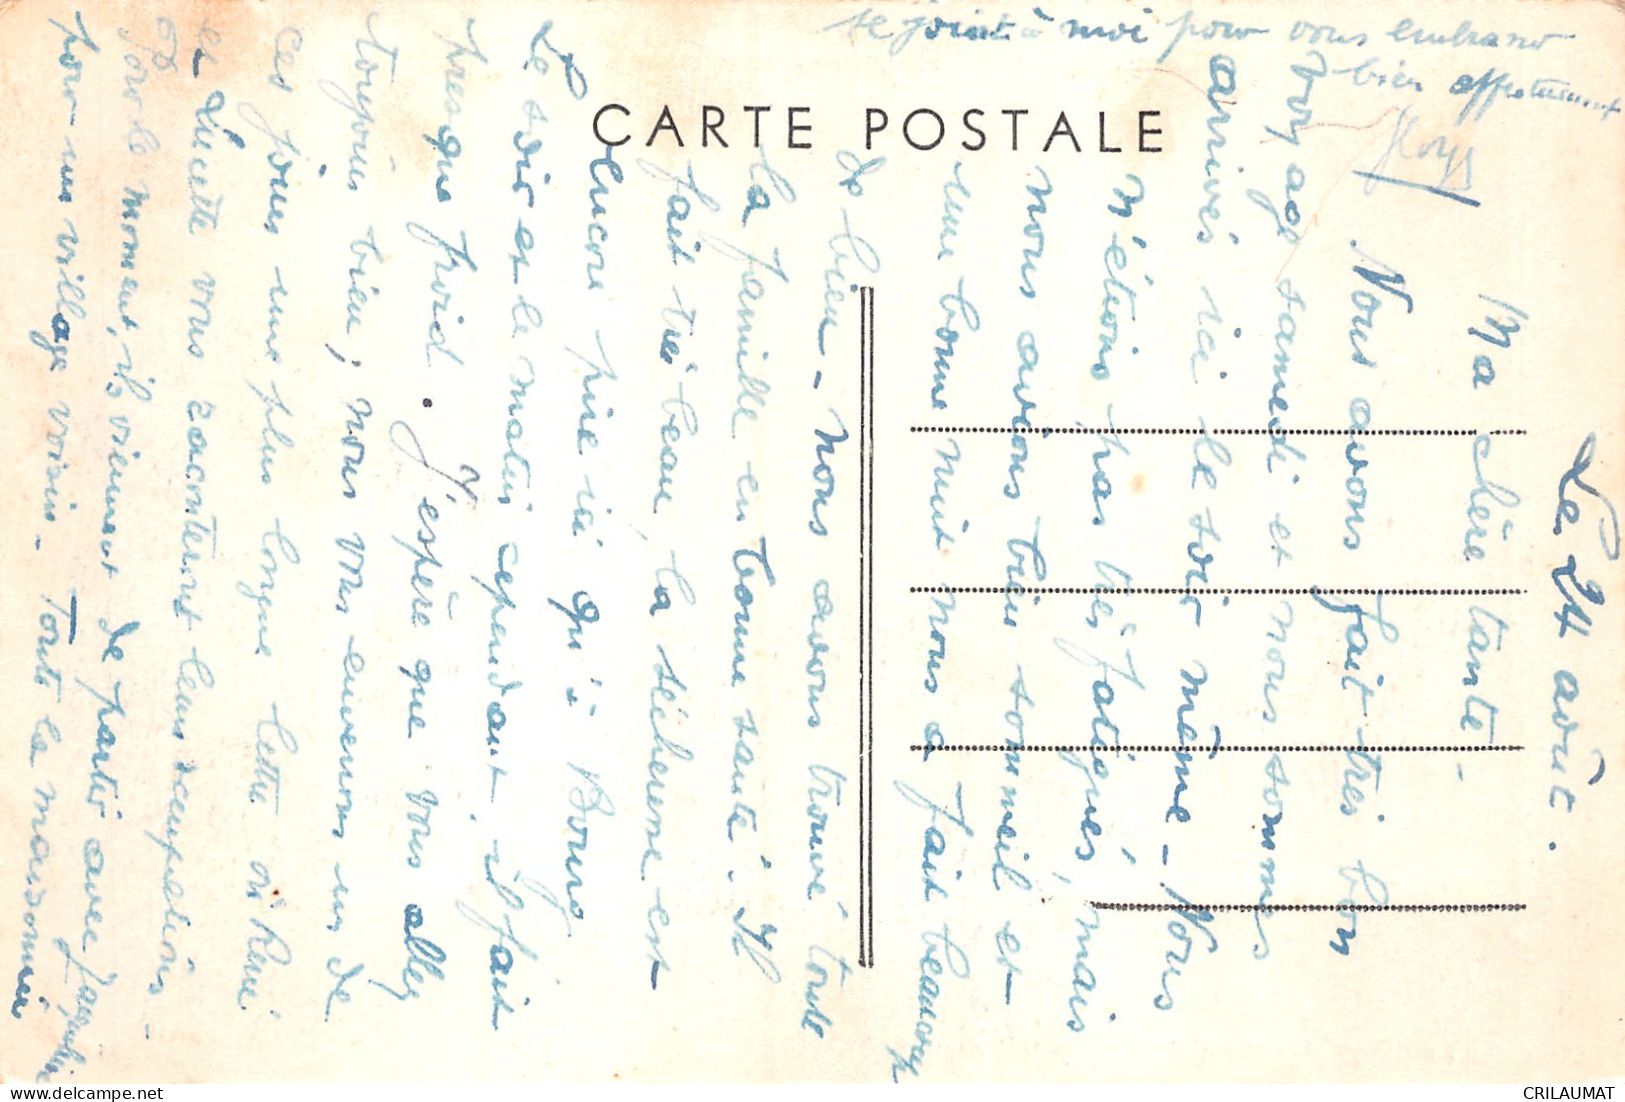 CARTE POSTALE
Le 24 août.
Ma chère tante -
Nous avons fait très bon
voyage samedi et nous sommes
arrivés ici le soir même - Nous
n'étions pas très fatigués, mais
nous avions bien sommeil et
une bonne nuit nous a fait beaucoup
de bien - nous avons trouvé toute
la famille en bonne santé. Il
fait très beau, la sécheresse est
encore pire ici qu'à Bourg
Le soir et le matin cependant, il fait
presque froid. J'espère que vous allez
toujours bien, nous vous enverrons un de
ces jours une plus longue lettre où René
et Lucette vous raconteront leurs occupations -
Pour le moment, ils viennent de partir avec Jacqueline
pour un village voisin - Toute la maisonnée
se joint à moi pour vous embrasser
bien affectueusement
CRILAUMAT